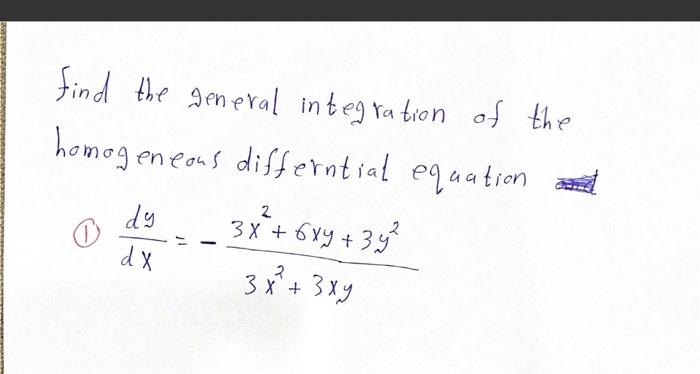 find the general integration of the
homogeneous differntial equation
① dy/dx = - (3x² + 6xy + 3y²)/(3x² + 3xy)